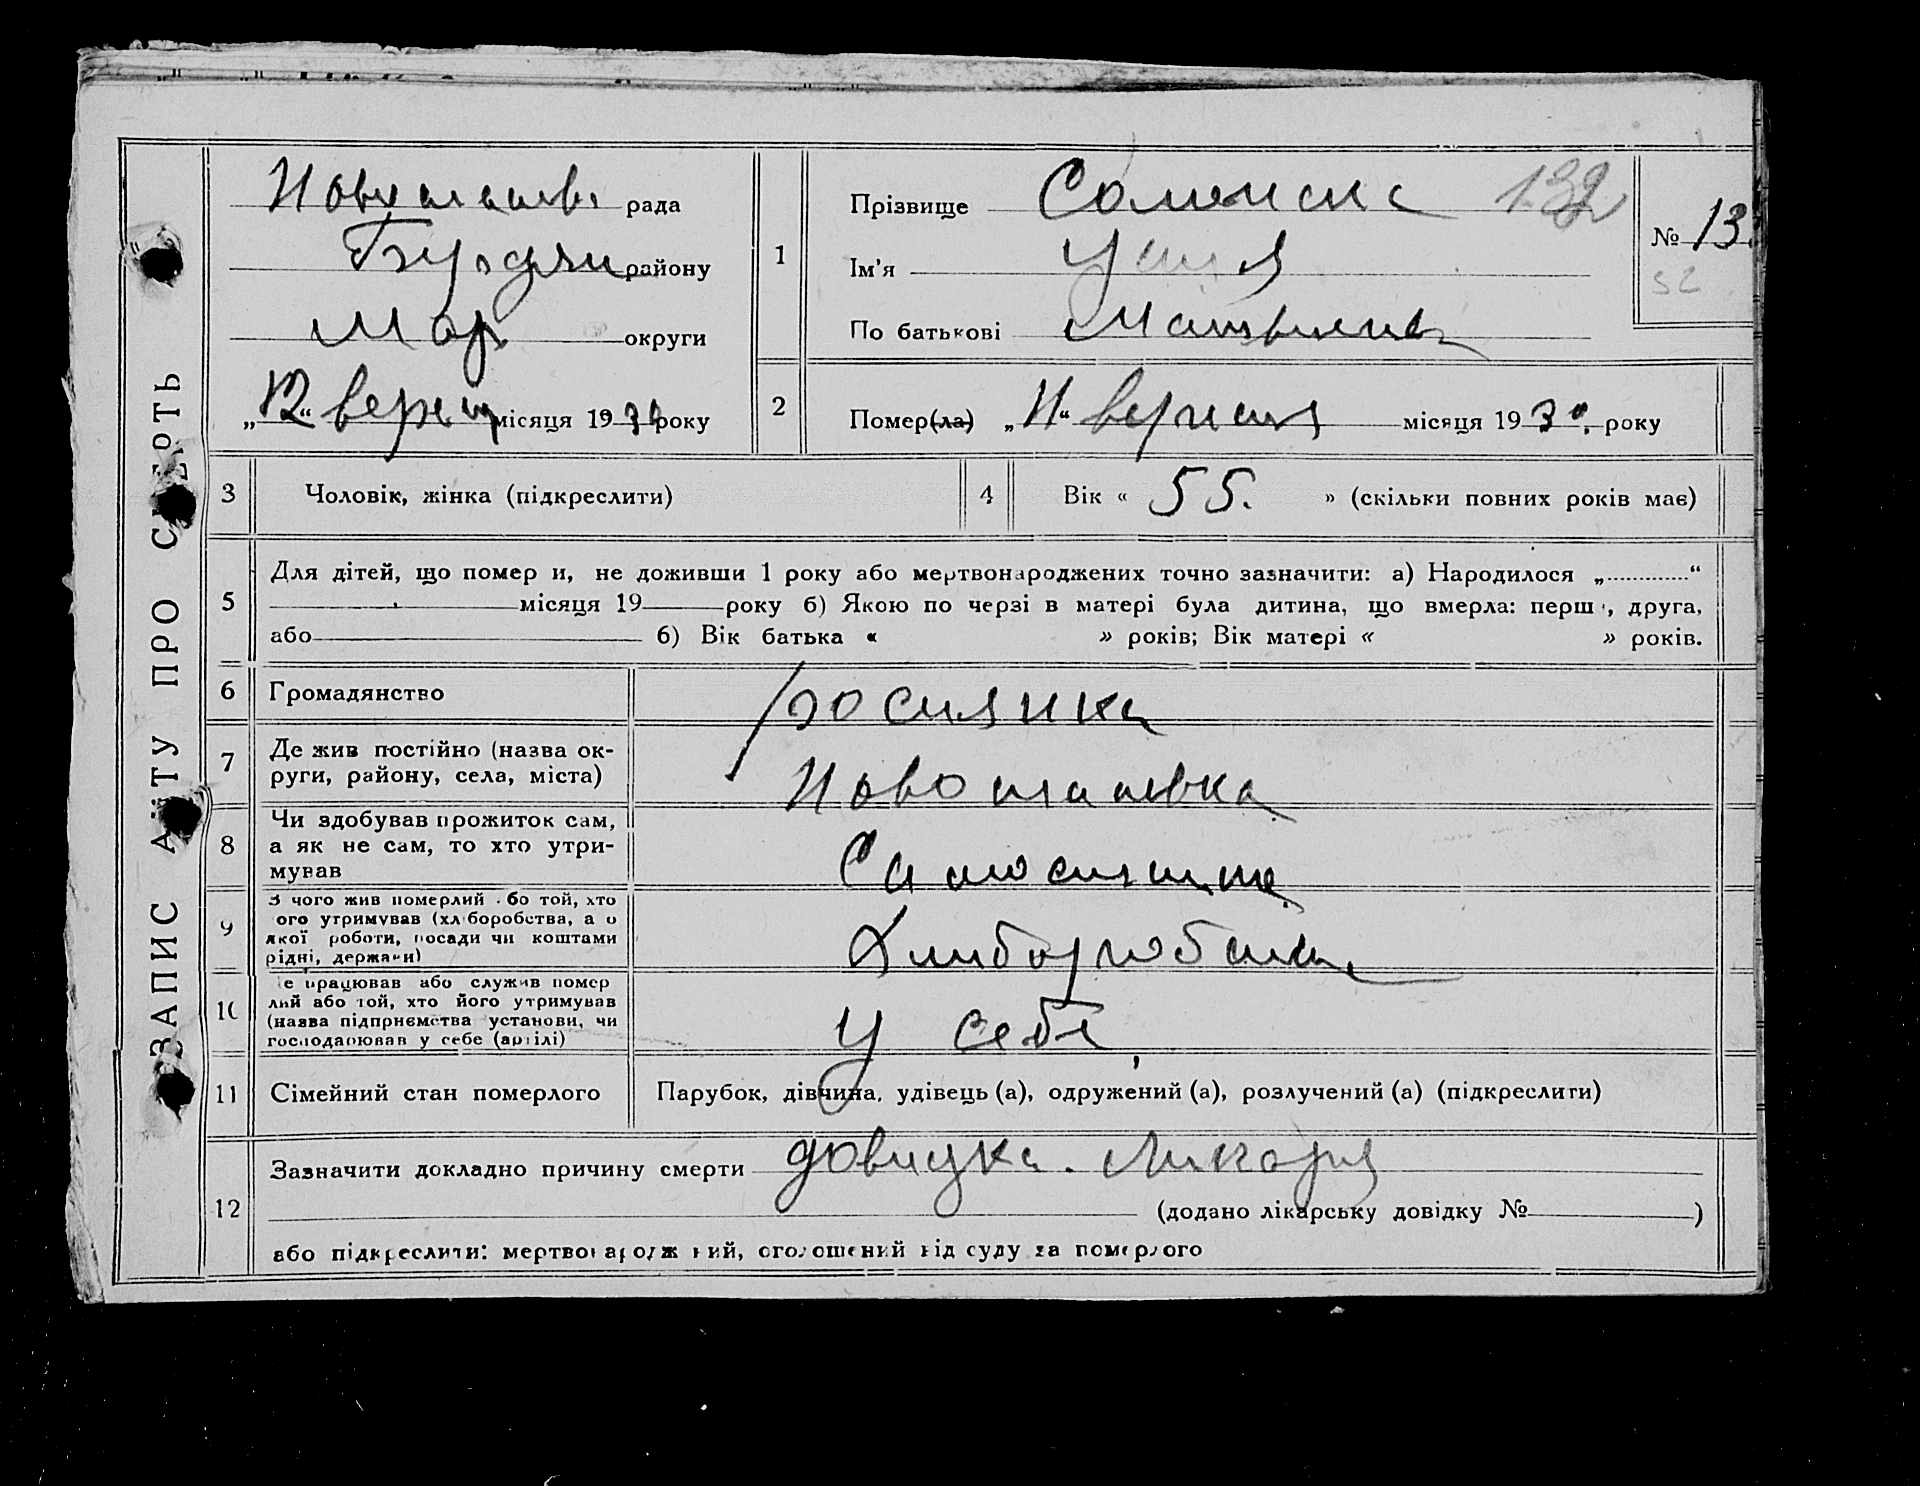 ЗАПИС АКТУ ПРО СМЕРТЬ
рада
району
Мар округи
„12“ верес місяця 1930 року
1
Прізвище
132
Ім'я
По батькові
№ 13
52
2
Помер(ла) „11“ вересня місяця 1930. року
3
Чоловік, жінка (підкреслити)
4
Вік « 55. » (скільки повних років має)
5
Для дітей, що помер и, не доживши 1 року або мертвонароджених точно зазначити: а) Народилося „ “
місяця 19 року б) Якою по черзі в матері була дитина, що вмерла: перш , друга,
або б) Вік батька « » років; Вік матері « » років.
6
Громадянство
росиянка
7
Де жив постійно (назва ок-
руги, району, села, міста)
8
Чи здобував прожиток сам,
а як не сам, то хто утри-
мував
9
З чого жив померлий бо той, хто
ого утримував (хл боробства, а о
якої роботи, посади чи коштами
рідні, держави)
10
е працював або служив помер
лий або той, хто його утримував
(назва підприємства установи, чи
господарював у себе (артілі)
у себе
11
Сімейний стан померлого
Парубок, дівчина, удівець (а), одружений (а), розлучений (а) (підкреслити)
12
Зазначити докладно причину смерти довидка. Ликаря
(додано лікарську довідку № )
або підкреслити: мертвонароджений, оголошений від суду за померлого